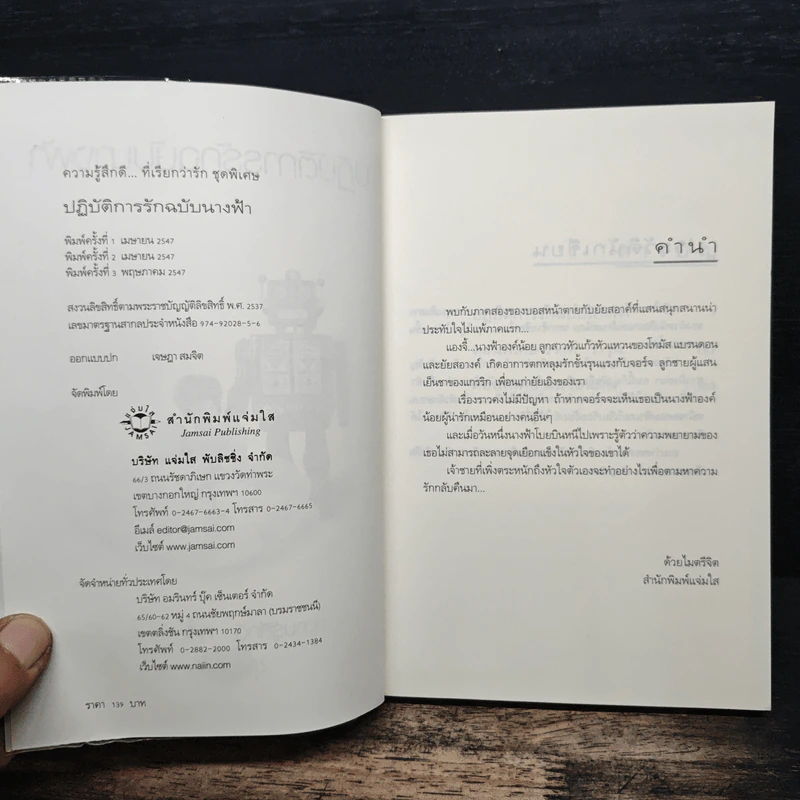 ความรู้สึกดี... ที่เรียกว่ารัก ชุดพิเศษ
ปฏิบัติการรักฉบับนางฟ้า
พิมพ์ครั้งที่ 1 เมษายน 2547
พิมพ์ครั้งที่ 2 เมษายน 2547
พิมพ์ครั้งที่ 3 พฤษภาคม 2547
สงวนลิขสิทธิ์ตามพระราชบัญญัติลิขสิทธิ์ พ.ศ. 2537
เลขมาตรฐานสากลประจำหนังสือ 974-92028-5-6
ออกแบบปก เจษฎา สมจิต
จัดพิมพ์โดย
แจ่มใส
JAMSAI
สำนักพิมพ์แจ่มใส
Jamsai Publishing
บริษัท แจ่มใส พับลิชชิ่ง จำกัด
66/3 ถนนรัชดาภิเษก แขวงวัดท่าพระ
เขตบางกอกใหญ่ กรุงเทพฯ 10600
โทรศัพท์ 0-2467-6663-4 โทรสาร 0-2467-6665
อีเมล์ editor@jamsai.com
เว็บไซต์ www.jamsai.com
จัดจำหน่ายทั่วประเทศโดย
บริษัท อมรินทร์ บุ๊ค เซ็นเตอร์ จำกัด
65/60-62 หมู่ 4 ถนนชัยพฤกษ์มาลา (บรมราชชนนี)
เขตตลิ่งชัน กรุงเทพฯ 10170
โทรศัพท์ 0-2882-2000 โทรสาร 0-2434-1384
เว็บไซต์ www.naiin.com
ราคา 139 บาท
คำนำ
พบกับภาคสองของบอสหน้าตายกับยัยสอาค์ที่แสนสนุกสนานน่า
ประทับใจไม่แพ้ภาคแรก...
แองจี้...นางฟ้าองค์น้อย ลูกสาวหัวแก้วหัวแหวนของโทมัส แบรนดอน
และยัยสอางค์ เกิดอาการตกหลุมรักขั้นรุนแรงกับจอร์จ ลูกชายผู้แสน
เย็นชาของแกรริก เพื่อนเก่ายัยเอิงของเรา
เรื่องราวคงไม่มีปัญหา ถ้าหากจอร์จจะเห็นเธอเป็นนางฟ้าองค์
น้อยผู้น่ารักเหมือนอย่างคนอื่นๆ
และเมื่อวันหนึ่งนางฟ้าโบยบินหนีไปเพราะรู้ตัวว่าความพยายามของ
เธอไม่สามารถละลายจุดเยือกแข็งในหัวใจของเขาได้
เจ้าชายที่เพิ่งตระหนักถึงหัวใจตัวเองจะทำอย่างไรเพื่อตามหาความ
รักกลับคืนมา...
ด้วยไมตรีจิต
สำนักพิมพ์แจ่มใส